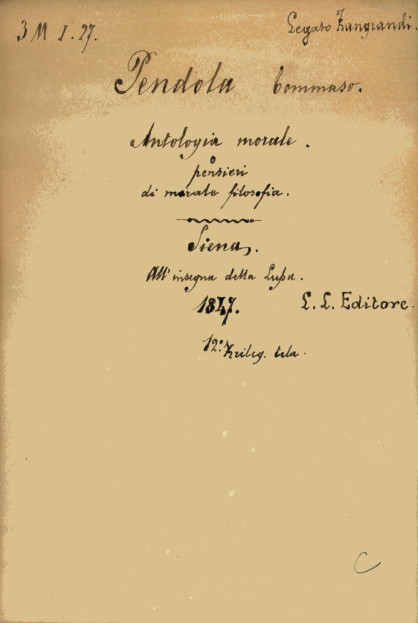 3 M I. 27.
Legato Zangrandi.
Pendola Tommaso.
Antologia morale.
o
pensieri
di morale filosofia.
Siena,
All' insegna della Lupa.
1847. L. L. Editore.
12° rileg. tela.
C